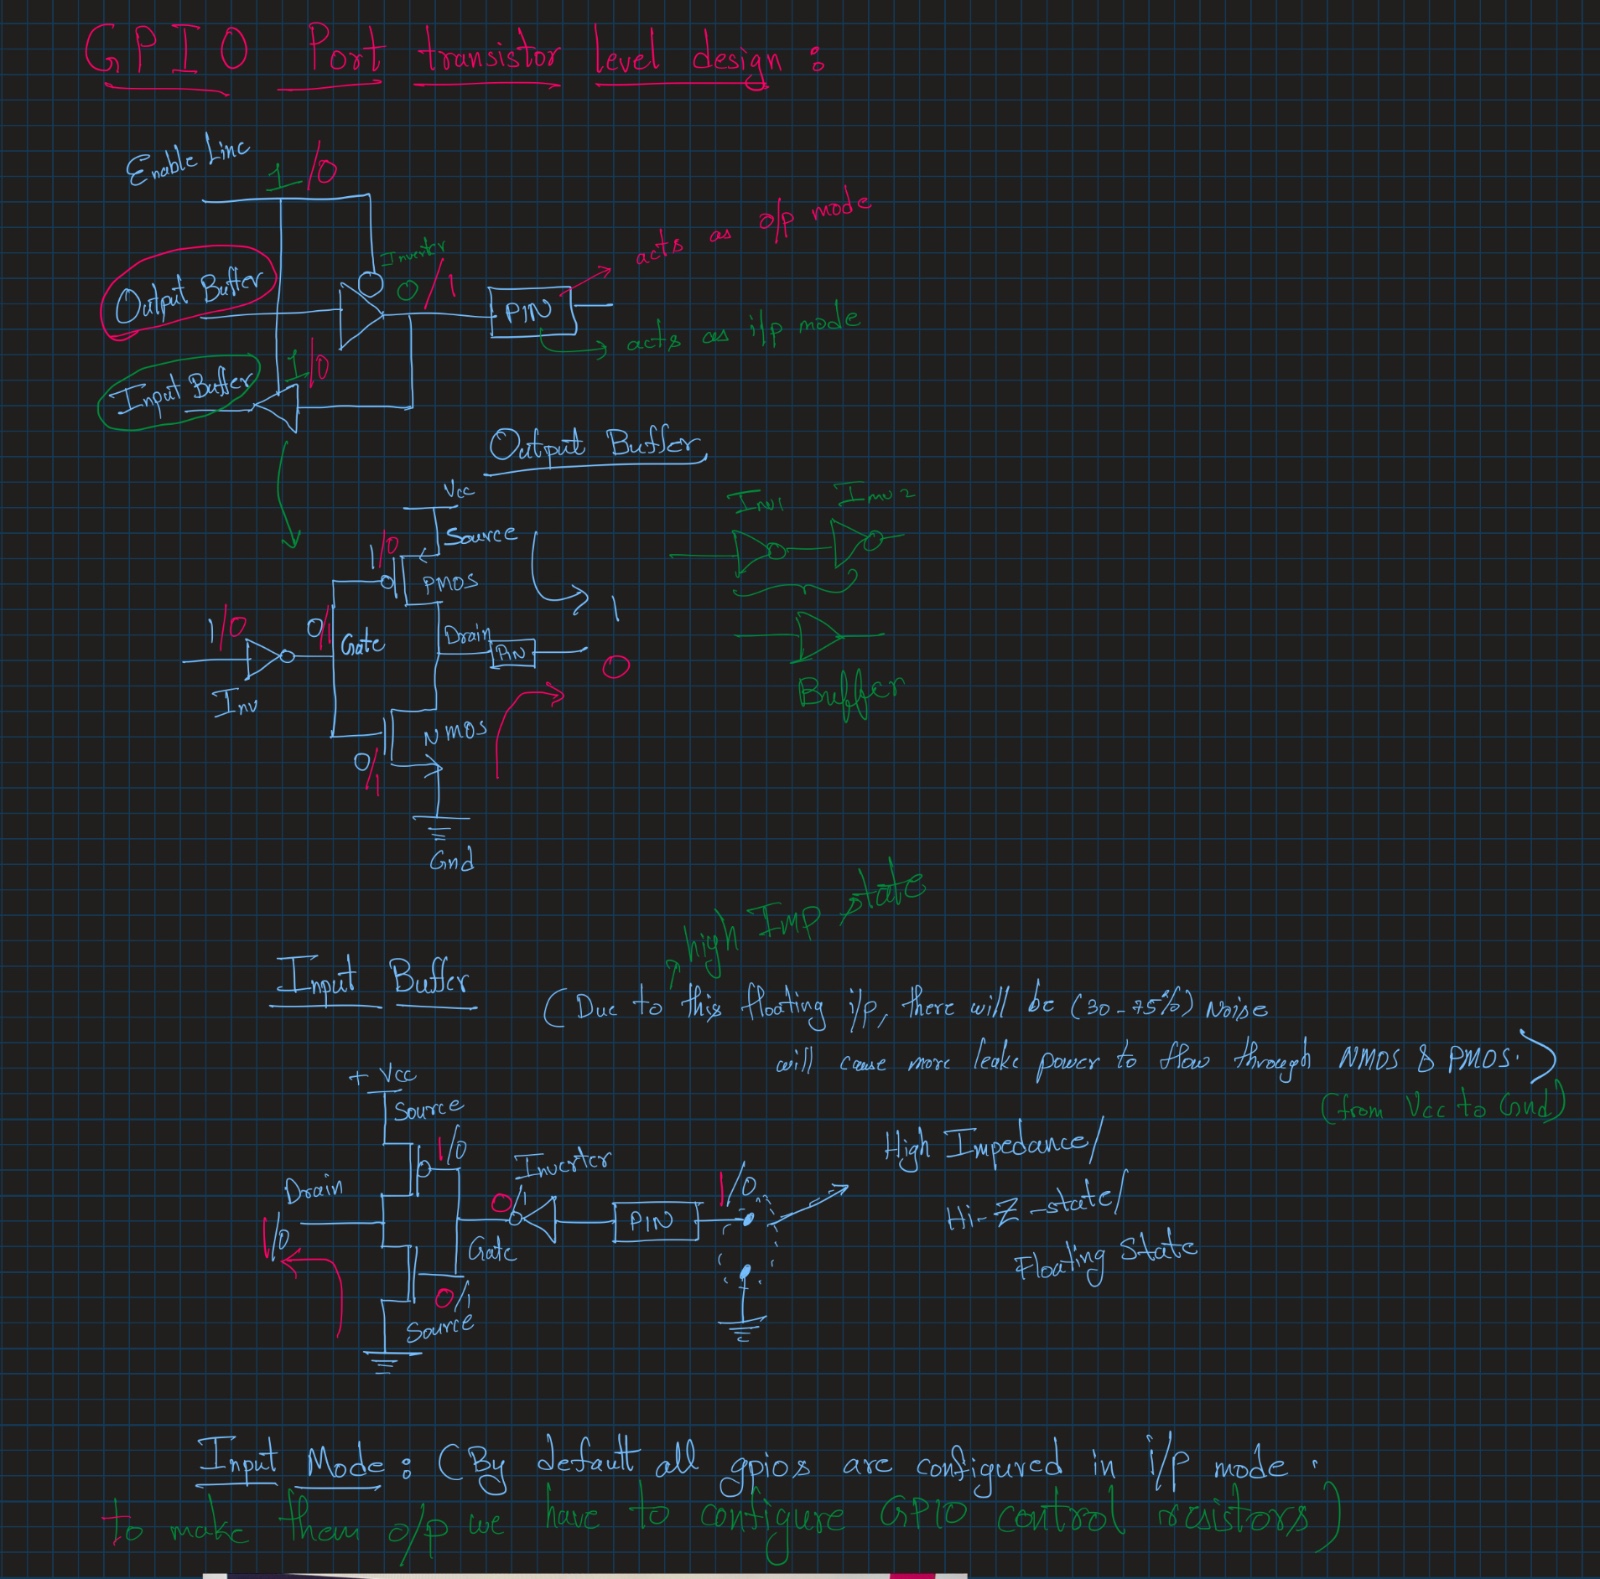 GPIO Port transistor level design :
Enable Line
1/0
Inverter
Output Buffer
0/1
PIN
acts as o/p mode
acts as i/p mode
1/0
Input Buffer
Output Buffer
Vcc
Source
1/0
PMOS
Inv1 Inv2
1
1/0
0/1
Gate
Drain
PIN
0
Inv
Buffer
NMOS
0/1
Gnd
high Imp state
Input Buffer
(Due to this floating i/p, there will be (30-75%) Noise
will cause more leake power to flow through NMOS & PMOS.)
(from Vcc to Gnd)
+ Vcc
Source
1/0
Inverter
High Impedance/
Drain
0/1
PIN
1/0
Hi-Z-state/
1/0
Gate
Floating State
0/1
Source
Input Mode : (By default all gpios are configured in i/p mode.
to make them o/p we have to configure GPIO control resistors)